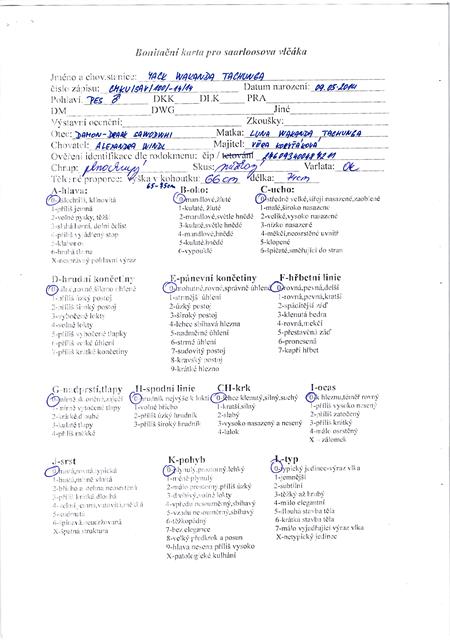 Bonitační karta pro saarloosova vlčáka
Jméno a chov.stanice: YACK WAKANDA TACHUNGA
číslo zápisu: CMKU/SAV/100/-14/14 Datum narození: 09.05.2014
Pohlaví: PES DKK DLK PRA
DM DWG Jiné
Výstavní ocenění: Zkoušky:
Otec: DAMON-DRAKE Matka: LUNA WAKANDA TACHUNGA
Chovatel: ALEXANDRA WINDL Majitel: VĚRA
Ověření identifikace dle rodokmenu: čip / tetování
Chrup: plnochrupý Skus: nůžkový Varlata: Ok
Tělesné proporce: výška v kohoutku: 66cm délka: 74cm
65-75cm
A-hlava: B-oko: C-ucho:
0-ušlechtilá, klínovitá 0-mandlové, žluté 0-středně velké, šířeji nasazené, zaoblené
1-příliš jemná 1-kulaté, žluté 1-malé, široko nasazené
2-volné pysky, těžší 2-mandlové, světle hnědé 2-velké, vysoko nasazené
3-slabá horní, dolní čelist 3-kulaté, světle hnědé 3-nízko nasazené
4-příliš vyjádřený stop 4-mandlové, hnědé 4-měkčí, neostražité uvnitř
5-klabonos 5-kulaté, hnědé 5-klopené
6-hrubá tlama 6-vypouklé 6-špičaté, směřující do stran
X-nesprávný pohlavní výraz
D-hrudní končetiny E-pánevní končetiny F-hřbetní linie
0-mohutné, rovné, správně úhlené 0-rovná, pevná, delší
1-příliš úzký postoj 1-strmější úhlení 1-rovná, pevná, kratší
2-příliš široký postoj 2-úzký postoj 2-spáditější záď
3-vybočené lokty 3-široký postoj 3-klenutá bedra
4-volné lokty 4-lehce sbíhavá hlezna 4-rovná, měkčí
5-příliš vybočené tlapky 5-nadměrné úhlení 5-přestavěná záď
6-příliš velké úhlení 6-strmé úhlení 6-pronesená
7-příliš krátké končetiny 7-sudovitý postoj 7-kapří hřbet
8-kravský postoj
9-krátké hlezno
G-nadprstí, tlapy H-spodní linie CH-krk I-ocas
0-hrudník nejvýše k lokti 0-lehce klenutý, silný, suchý 0-k hleznu, téměř rovný
1-mírně vytočené tlapy 1-volné břicho 1-kratší, silný 1-příliš vysoko nesený
2-krátké, dubé 2-příliš úzký hrudník 2-slabý 2-příliš zatočený
3-kulaté tlapy 3-příliš široký hrudník 3-vysoko nasazený a nesený 3-příliš krátký
4-příliš měkké 4-lalok 4-málo osrstěný
X - zálomek
J-srst K-pohyb L-typ
0-hustá, rovná, typická 0-plynulý, prostorný, lehký 0-typický jedinec-výraz vlka
1-hustá, mírně vlnitá 1-méně plynulý 1-jemnější
2-břicho a slabina neosrstěná 2-málo prostorný, příliš úzký 2-subtilní
3-příliš krátká, dlouhá 3-drobivý, volné lokty 3-těžký až hrubý
4-vpředu nesouměrný, sbíhavý 4-málo elegantní
5-vzadu nesouměrný, sbíhavý 5-dlouhá stavba těla
6-těžkopádný 6-krátká stavba těla
7-bez elegance 7-málo vyjadřující výraz vlka
X-špatná struktura 8-velký předkrok a posun X-netypický jedinec
9-hlava nesena příliš vysoko
X-patologické kulhání